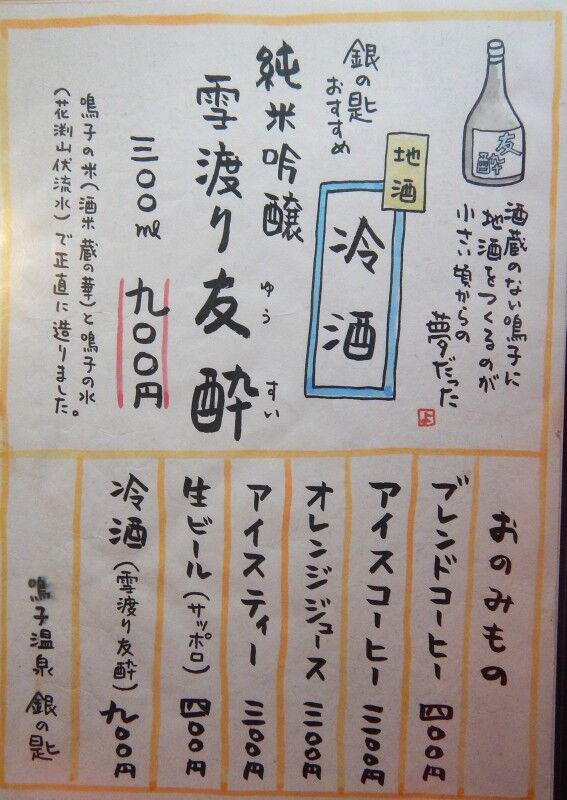 友酔
酒蔵のない鳴子に
地酒をつくるのが
小さい頃からの
夢だった
よ
地酒
冷酒
銀の匙
おすすめ
純米吟醸
雪渡り友酔
ゆうすい
三〇〇ml 九〇〇円
鳴子の米(酒米 蔵の華)と鳴子の水
(花渕山伏流水)で正直に造りました。
おのみもの
ブレンドコーヒー 四〇〇円
アイスコーヒー 三〇〇円
オレンジジュース 三〇〇円
アイスティー 三〇〇円
生ビール(サッポロ) 四〇〇円
冷酒(雪渡り友酔) 九〇〇円
鳴子温泉 銀の匙